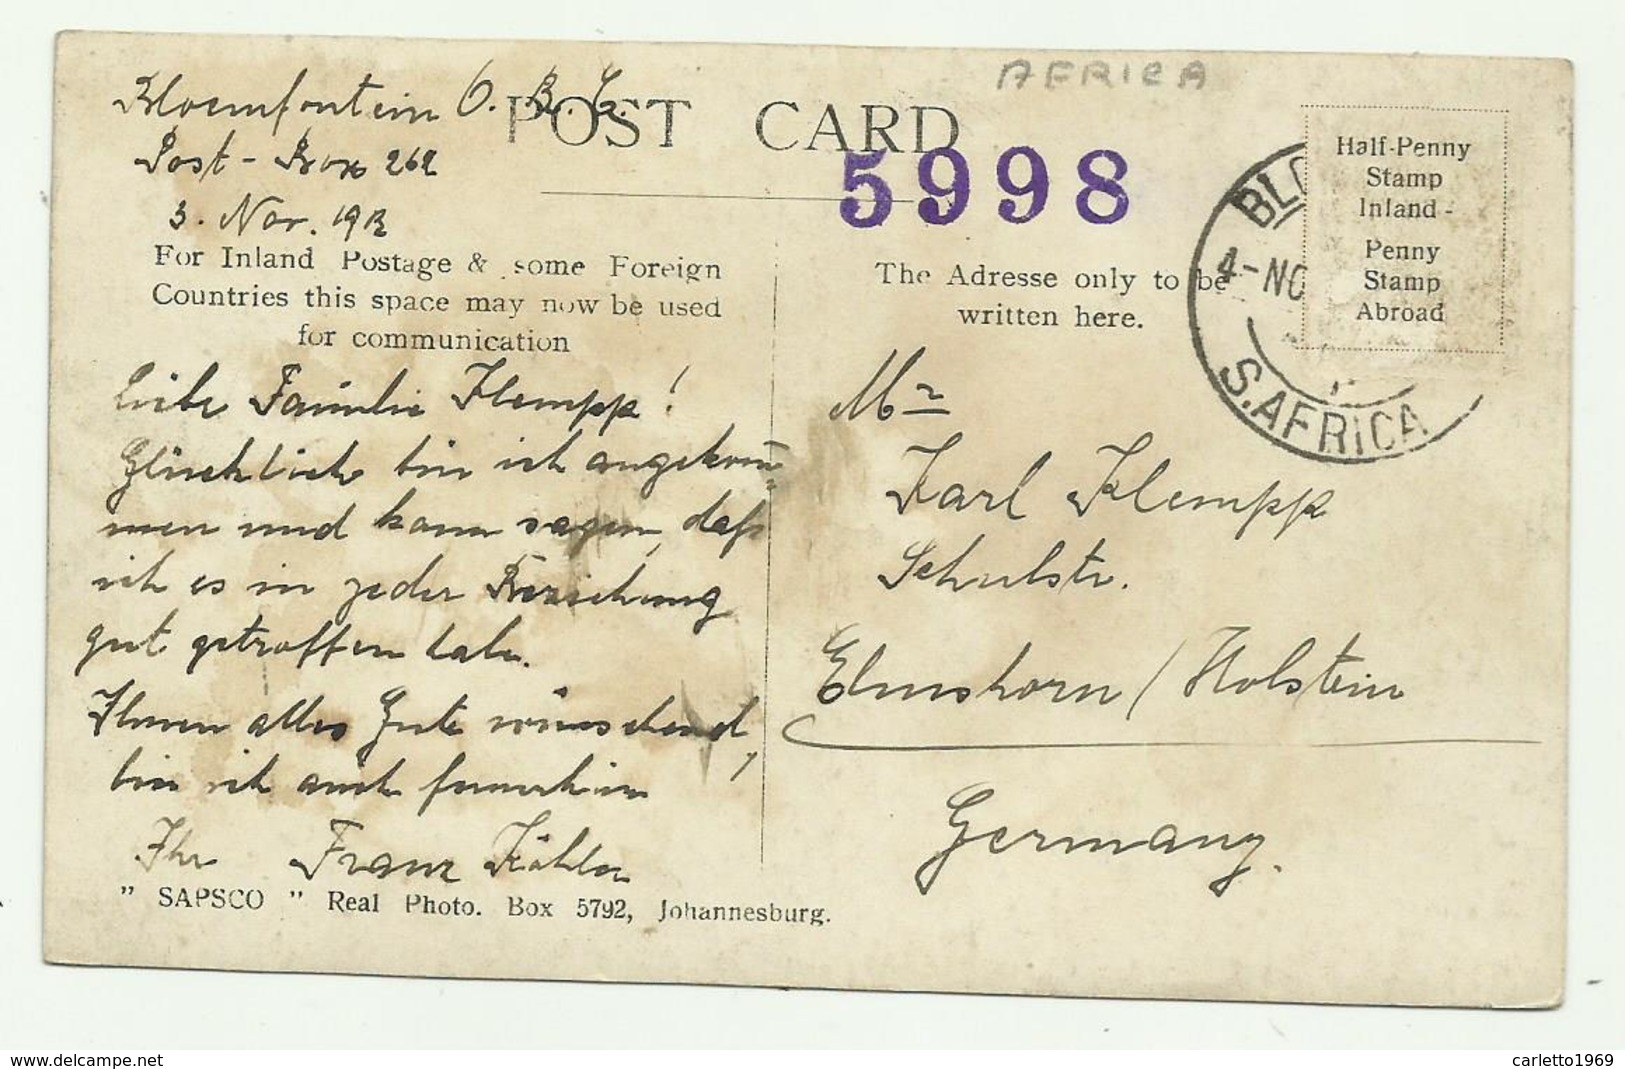 AFRICA
Bloemfontein O. R. C.
POST CARD
Post-Box 262
5998
3. Nov. 1912
For Inland Postage & some Foreign
Countries this space may now be used
for communication
The Adresse only to be
written here.
Half-Penny
Stamp
Inland -
Penny
Stamp
Abroad
BLO
4-NO
S.AFRICA
Liebe Familie Klempp!
Glücklich bin ich angekom-
men und kann sagen, daß
ich es in jeder Beziehung
gut getroffen habe.
Ihnen alles Gute wünschend,
bin ich auch fernerhin
Ihr Franz Köhler
Mr
Karl Klempp
Schulstr.
Elmshorn / Holstein
Germany.
" SAPSCO " Real Photo. Box 5792, Johannesburg.
delcampe.net
carletto1969